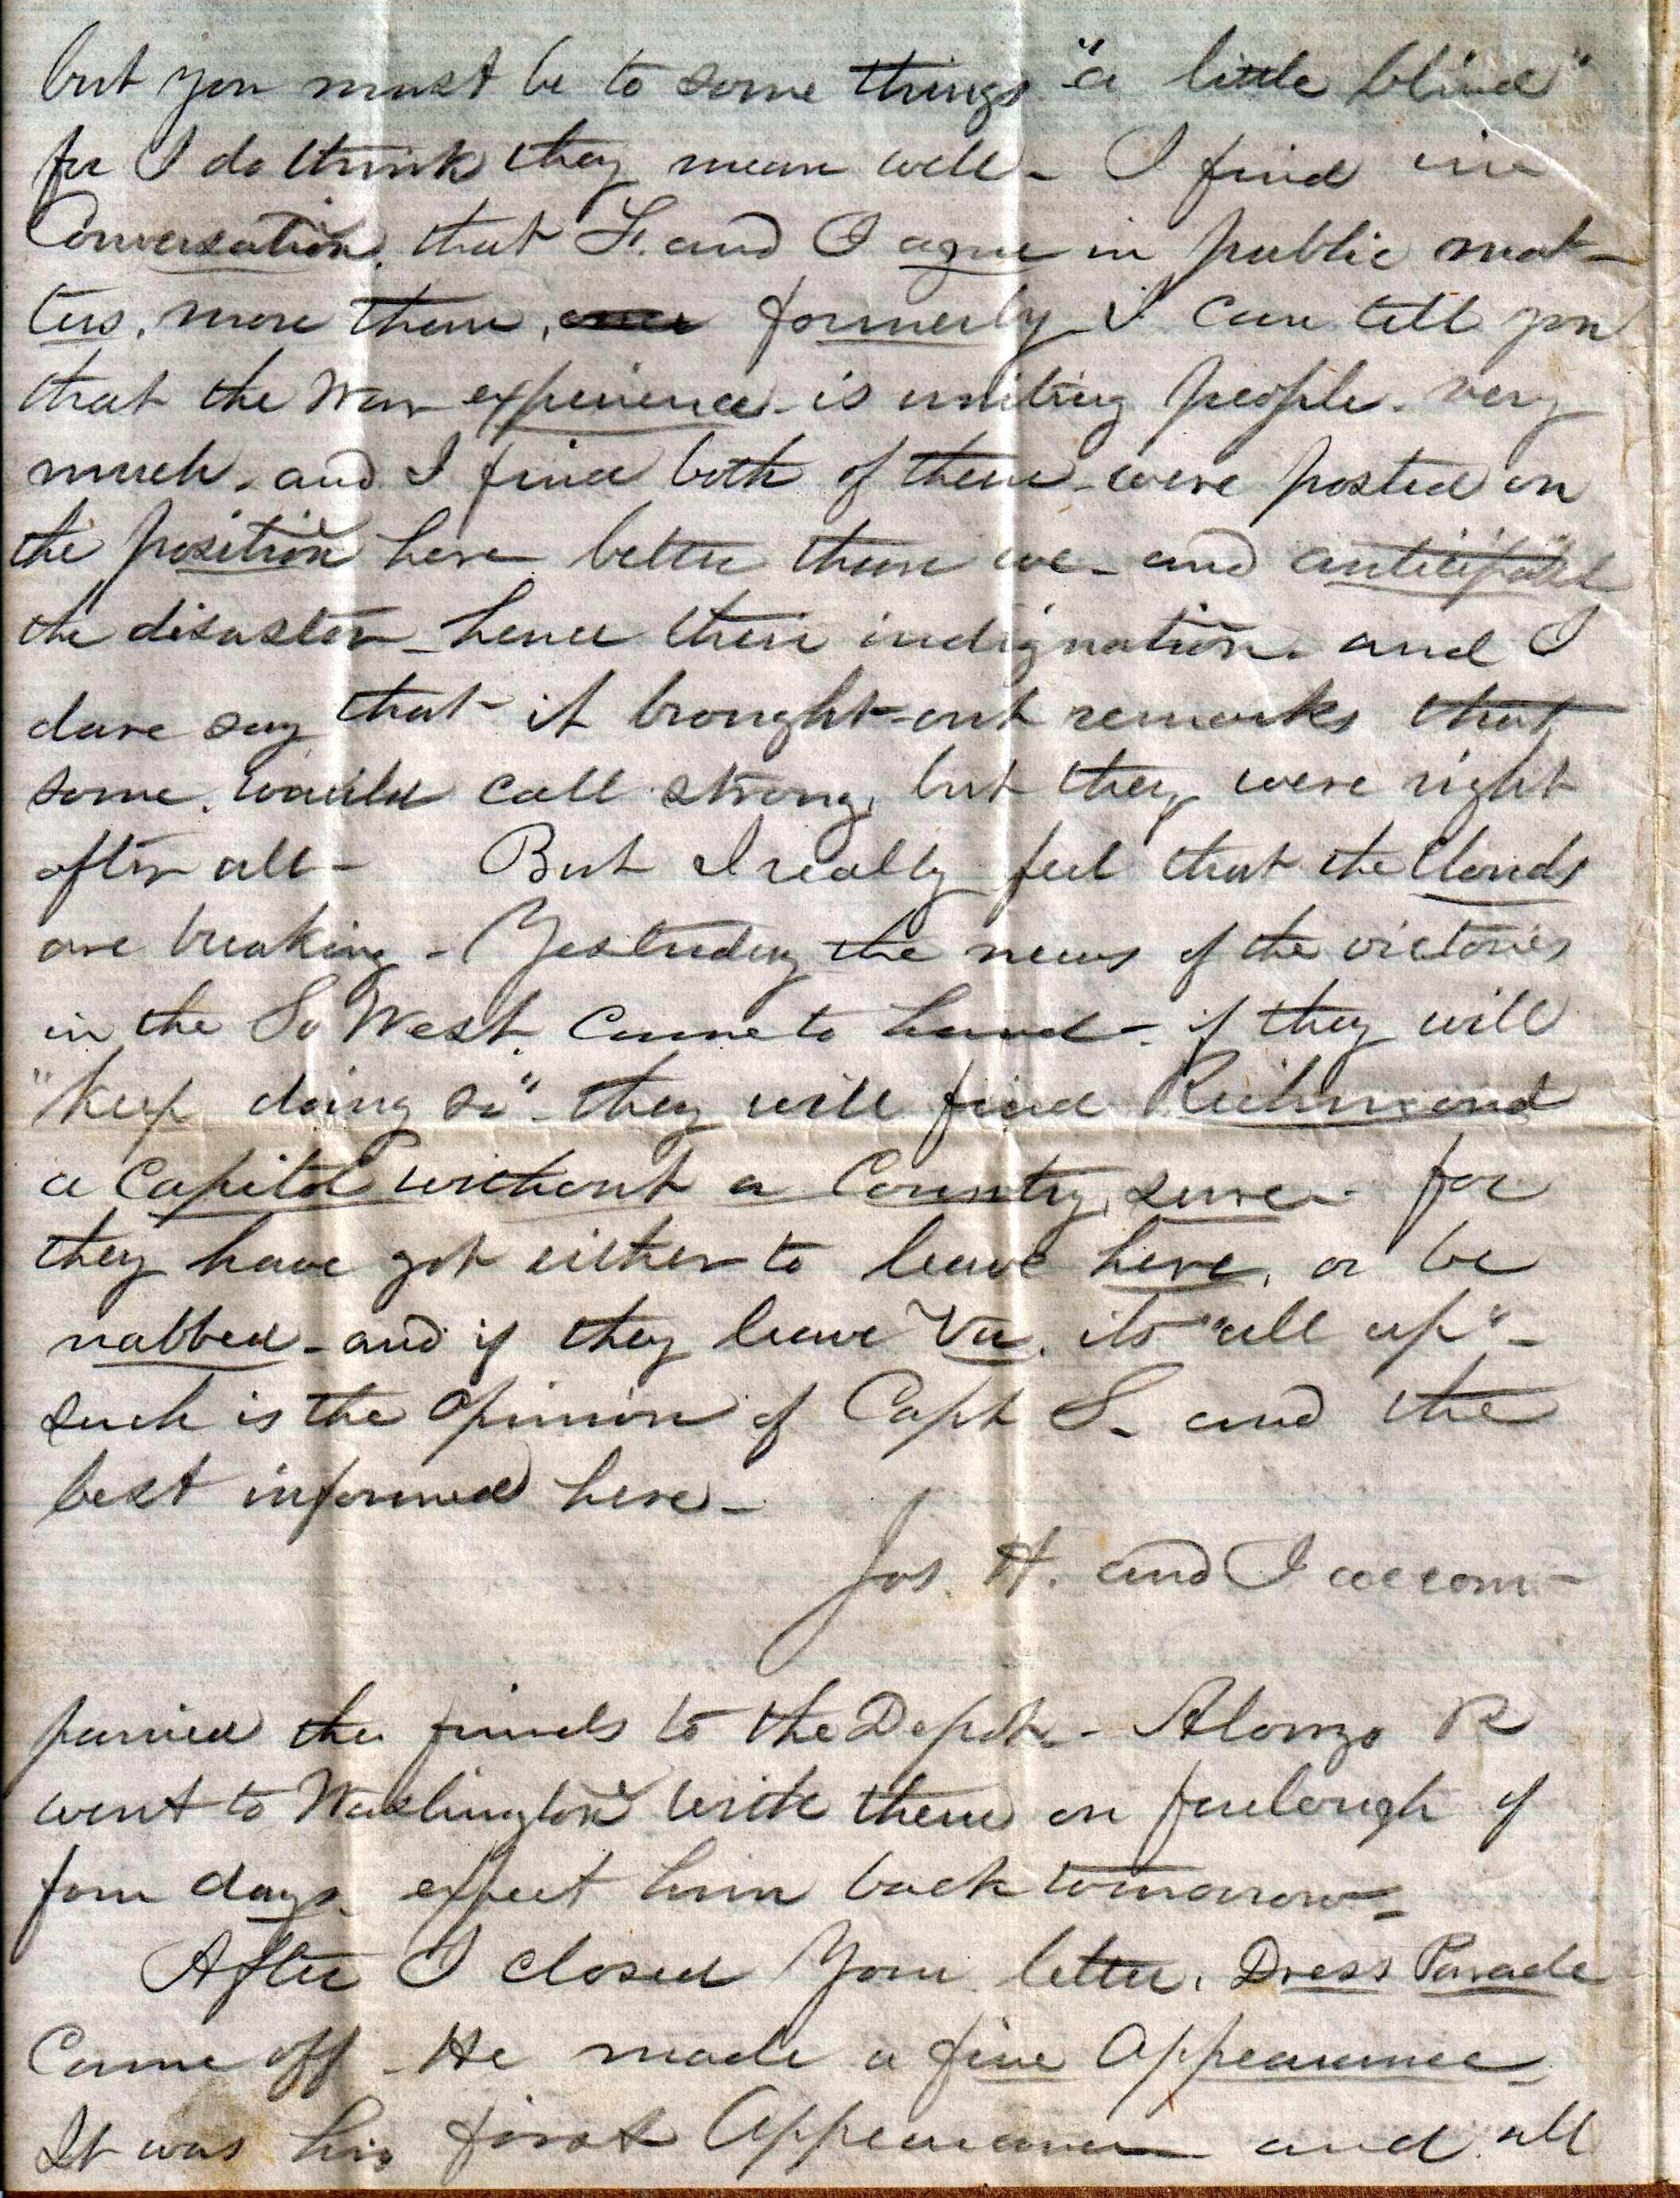 but you must be to some things "a little blind"
for I do think they mean well - I find in
Conversation, that F. and I agree in public mat-
ters, more than formerly I can tell you
that the War experience - is uniting people - very
much - and I find both of them - were posted on
the position here better than we - and anticipated
the disaster - hence their indignation - and I
dare say that it brought out remarks that
some would call strong, but they were right
after all - But I really feel that the Clouds
are breaking - Yesterday the news of the victories
in the So West came to hand - if they will
"keep doing so" - they will find Richmond
a Capitol without a Country, sure - for
they have got either to leave here, or be
nabbed - and if they leave Va. its "all up" -
such is the opinion of Capt S. and the
best informed here -
Jos. H. and I accom-
panied the friends to the Depot - Alonzo R
went to Washington with them on furlough of
four days. expect him back tomorrow -
After I closed Your letter, Dress Parade
Came off - He made a fine Appearance,
It was his first Appearance and all